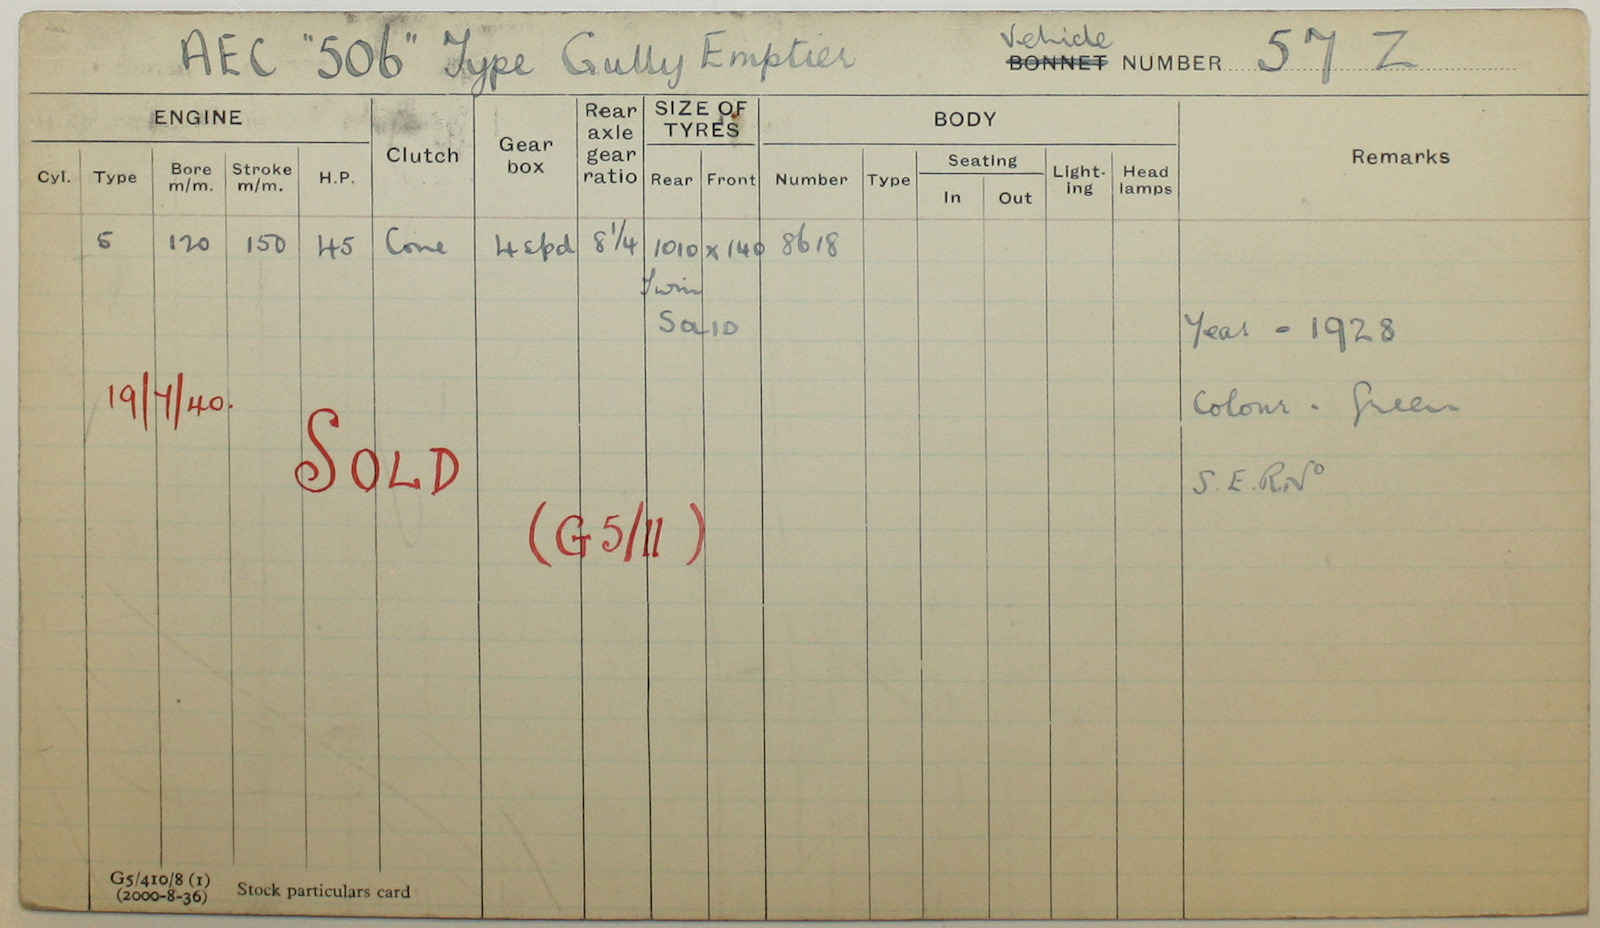 AEC "506" Type Gully Emptier
Vehicle
BONNET NUMBER 57 Z
ENGINE
Clutch
Gear box
Rear axle gear ratio
SIZE OF TYRES
BODY
Remarks
Cyl. Type Bore m/m. Stroke m/m. H.P.
Rear Front
Number Type Seating In Out Light-ing Head lamps
5 120 150 45 Cone 4 spd 8 1/4 1010 x 140 8618
Twin
Sa 10
Year - 1928
19/7/40.
Colour - Green
SOLD
S. E. R No
(G5/11)
G5/410/8 (1)
(2000-8-36)
Stock particulars card